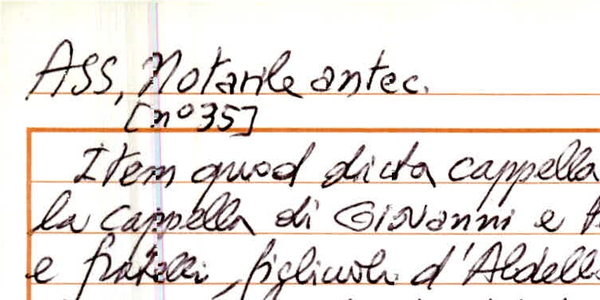 ASS, Notarile antec.
[nº 35]
Item quod dicta cappella
la cappella di Giovanni e
e fratelli, figliuoli d'Aldello